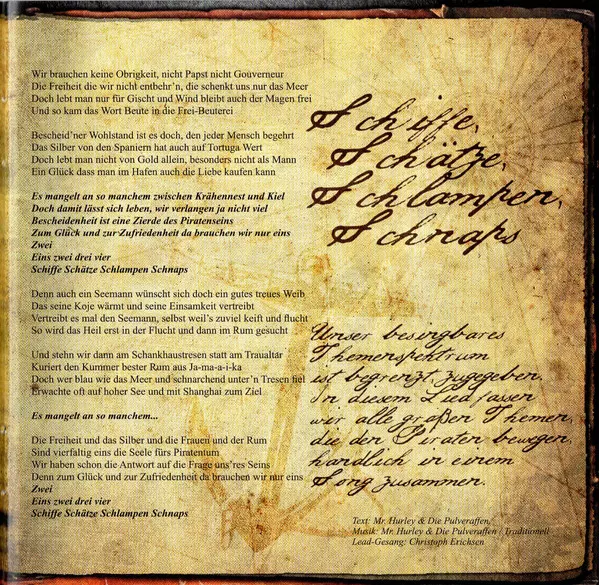 Wir brauchen keine Obrigkeit, nicht Papst nicht Gouverneur
Die Freiheit die wir nicht entbehr'n, die schenkt uns nur das Meer
Doch lebt man nur für Gischt und Wind bleibt auch der Magen frei
Und so kam das Wort Beute in die Frei-Beuterei

Bescheid'ner Wohlstand ist es doch, den jeder Mensch begehrt
Das Silber von den Spaniern hat auch auf Tortuga Wert
Doch lebt man nicht von Gold allein, besonders nicht als Mann
Ein Glück dass man im Hafen auch die Liebe kaufen kann

Es mangelt an so manchem zwischen Krähennest und Kiel
Doch damit lässt sich leben, wir verlangen ja nicht viel
Bescheidenheit ist eine Zierde des Piratenseins
Zum Glück und zur Zufriedenheit da brauchen wir nur eins
Zwei
Eins zwei drei vier
Schiffe Schätze Schlampen Schnaps

Denn auch ein Seemann wünscht sich doch ein gutes treues Weib
Das seine Koje wärmt und seine Einsamkeit vertreibt
Vertreibt es mal den Seemann, selbst weil's zuviel keift und flucht
So wird das Heil erst in der Flucht und dann im Rum gesucht

Und stehn wir dann am Schankhaustresen statt am Traualtär
Kuriert den Kummer bester Rum aus Ja-ma-a-i-ka
Doch wer blau wie das Meer und schnarchend unter'n Tresen fiel
Erwachte oft auf hoher See und mit Shanghai zum Ziel

Es mangelt an so manchem...

Die Freiheit und das Silber und die Frauen und der Rum
Sind vierfaltig eins die Seele fürs Piratentum
Wir haben schon die Antwort auf die Frage uns'res Seins
Denn zum Glück und zur Zufriedenheit da brauchen wir nur eins
Zwei
Eins zwei drei vier
Schiffe Schätze Schlampen Schnaps

Schiffe,
Schätze,
Schlampen,
Schnaps

Unser besingbares
Themenspektrum
ist begrenzt, zugegeben.
In diesem Lied fassen
wir alle großen Themen,
die den Piraten bewegen,
handlich in einem
Song zusammen.

Text: Mr. Hurley & Die Pulveraffen,
Musik: Mr. Hurley & Die Pulveraffen / Traditionell
Lead-Gesang: Christoph Erichsen